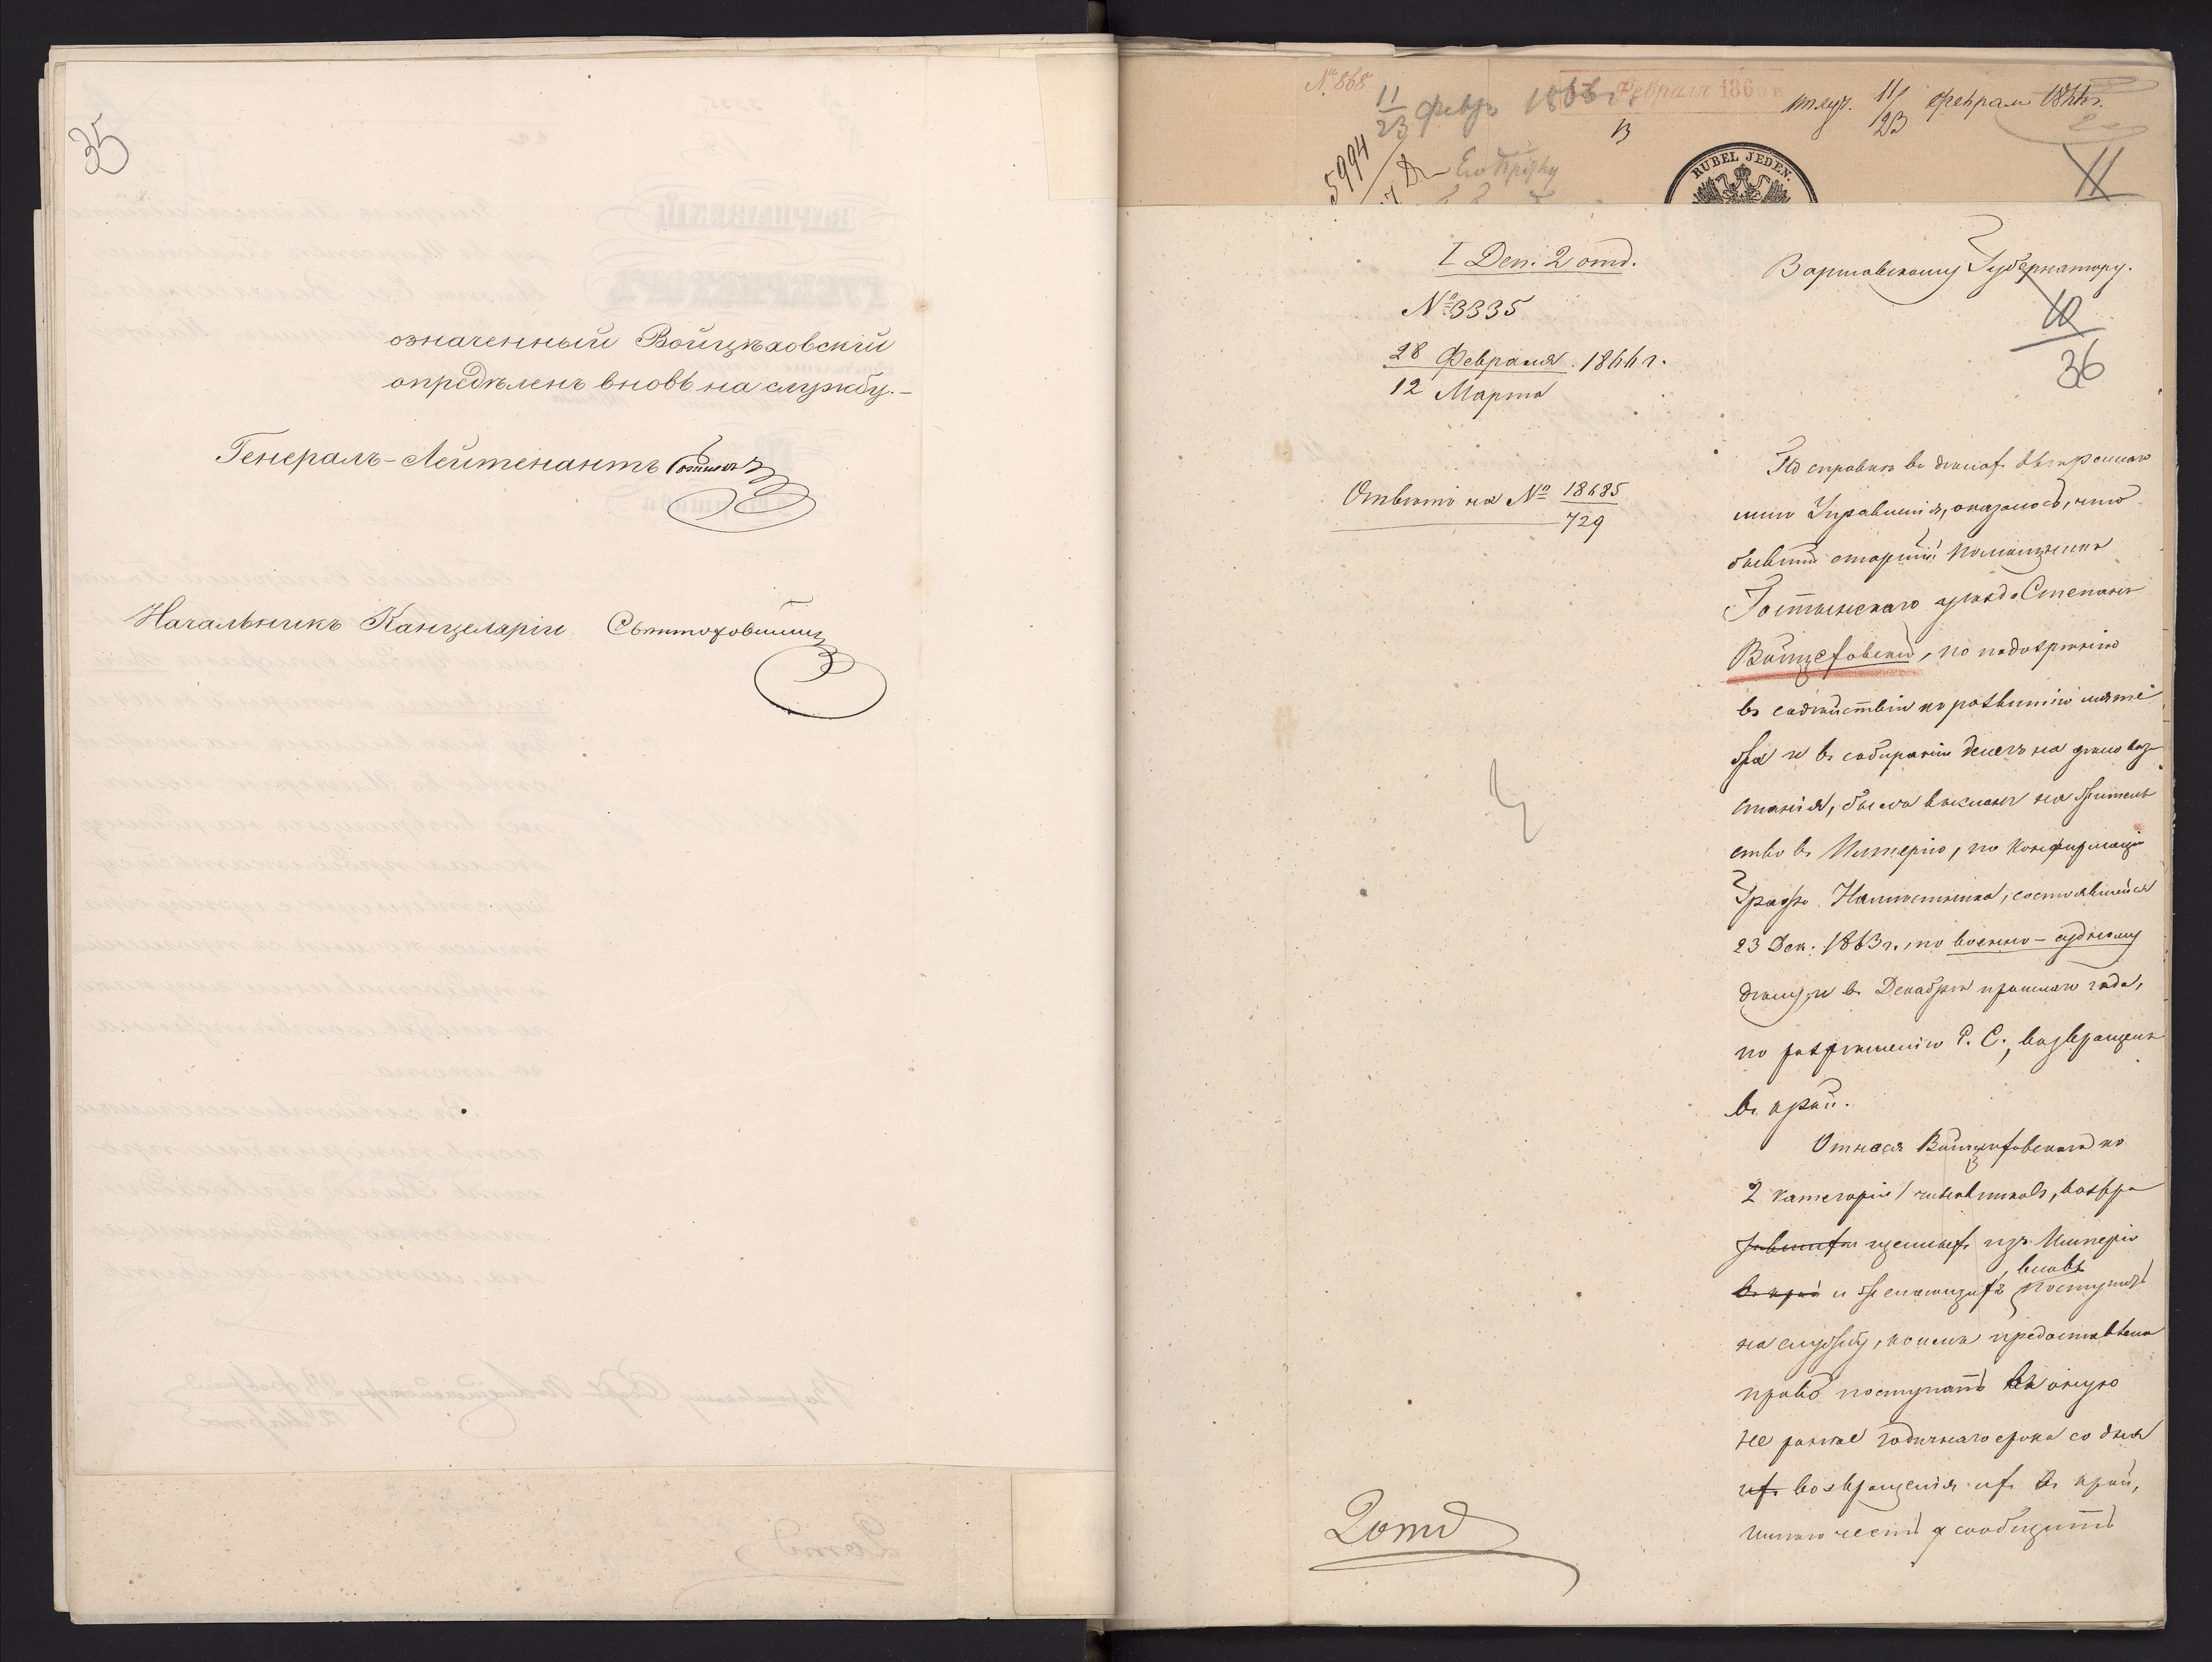 35
означенный Войцѣховскій
опредѣленъ вновь на службу.-
Генералъ-Лейтенантъ
Начальникъ Канцеляріи
№ 868
11/23 февр 1866
Февраля 186
получ. 11/23 Февраля 1866 г.
5994
RUBEL JEDEN.
I Деп. 2 отд.
№ 3335
28 Февраля 1866 г.
12 Марта
Отвѣтъ на № 18685
729
2 отд
Варшавскому Губернатору.
10
36
По справкѣ въ дѣлахъ ввѣреннаго
мнѣ Управленія, оказалось, что
бывшій старшій Помощникъ
Гостынскаго уѣзда Степанъ
Войцеховскій, по подозрѣнію
въ содѣйствіи къ развитію мяте
жа и въ собираніи денегъ на дѣло воз
станія, былъ высланъ на житель
ство въ Имперію, по конфирмаціи
Графа Намѣстника, состоявшейся
23 Дек. 1863 г., по военно-судному
дѣлу, и въ Декабрѣ прошлаго года,
по разрѣшенію Г. С., возвращенъ
въ край.
Относя Войцѣховскаго ко
2 категоріи чиновниковъ, возвра
щенныхъ изъ Имперіи
въ край и желающихъ вновь поступить
на службу, коимъ предоставлено
право поступать въ оную
не ранѣе годичнаго срока со дня
ихъ возвращенія ихъ въ край,
имѣю честь сообщить